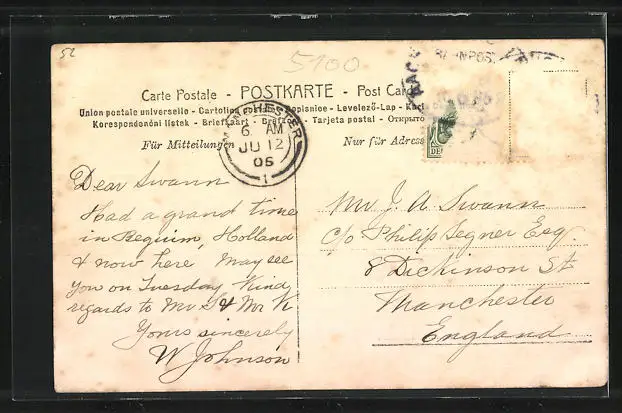 52
5100
BAHNPOST
Carte Postale - POSTKARTE - Post Card
Union postale universelle - Cartolina postale - Dopisnice - Levelező-Lap - Kart
Korespondonéni listek - Briefkaart - Tarjeta postal - Открыто
Für Mitteilungen
Nur für Adresse
MANCHESTER
6. AM
JU 12
05
1
DE
Dear Swann
Had a grand time
in Begium, Holland
& now here May see
you on Tuesday Kind
regards to Mr S & Mr K
Yours sincerely
W Johnson
Mr J. A Swann
C/o Philip Segner Esq.
8 Dickinson St
Manchester
England